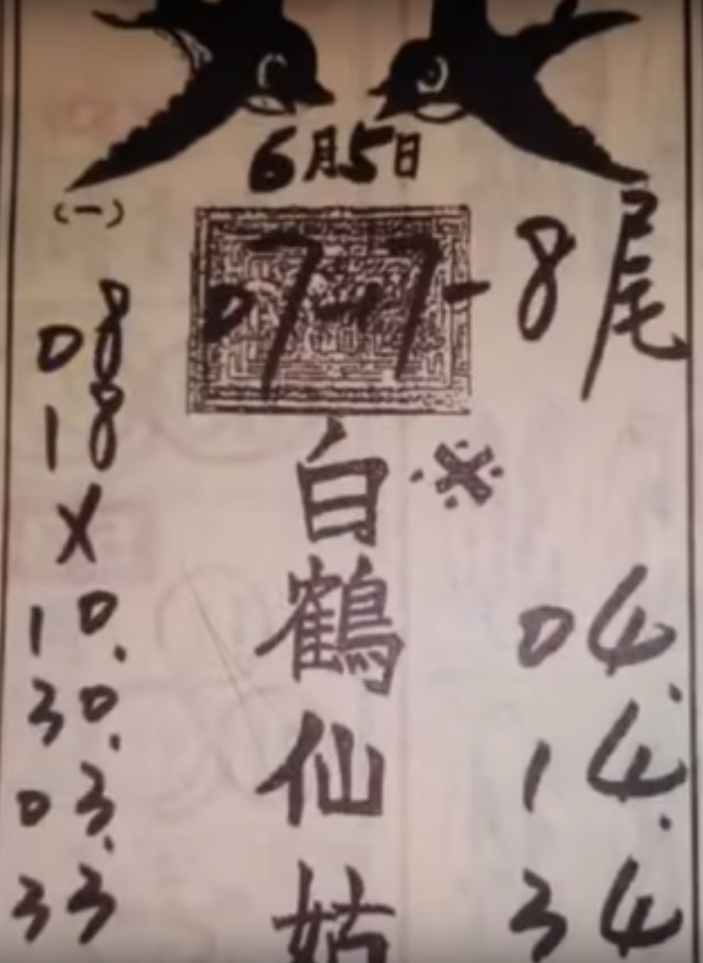 6月5日
(一)
07-17-8尾
08
18
X
10.
30.
03.
33
白鶴仙姑
※
04.
14.
34